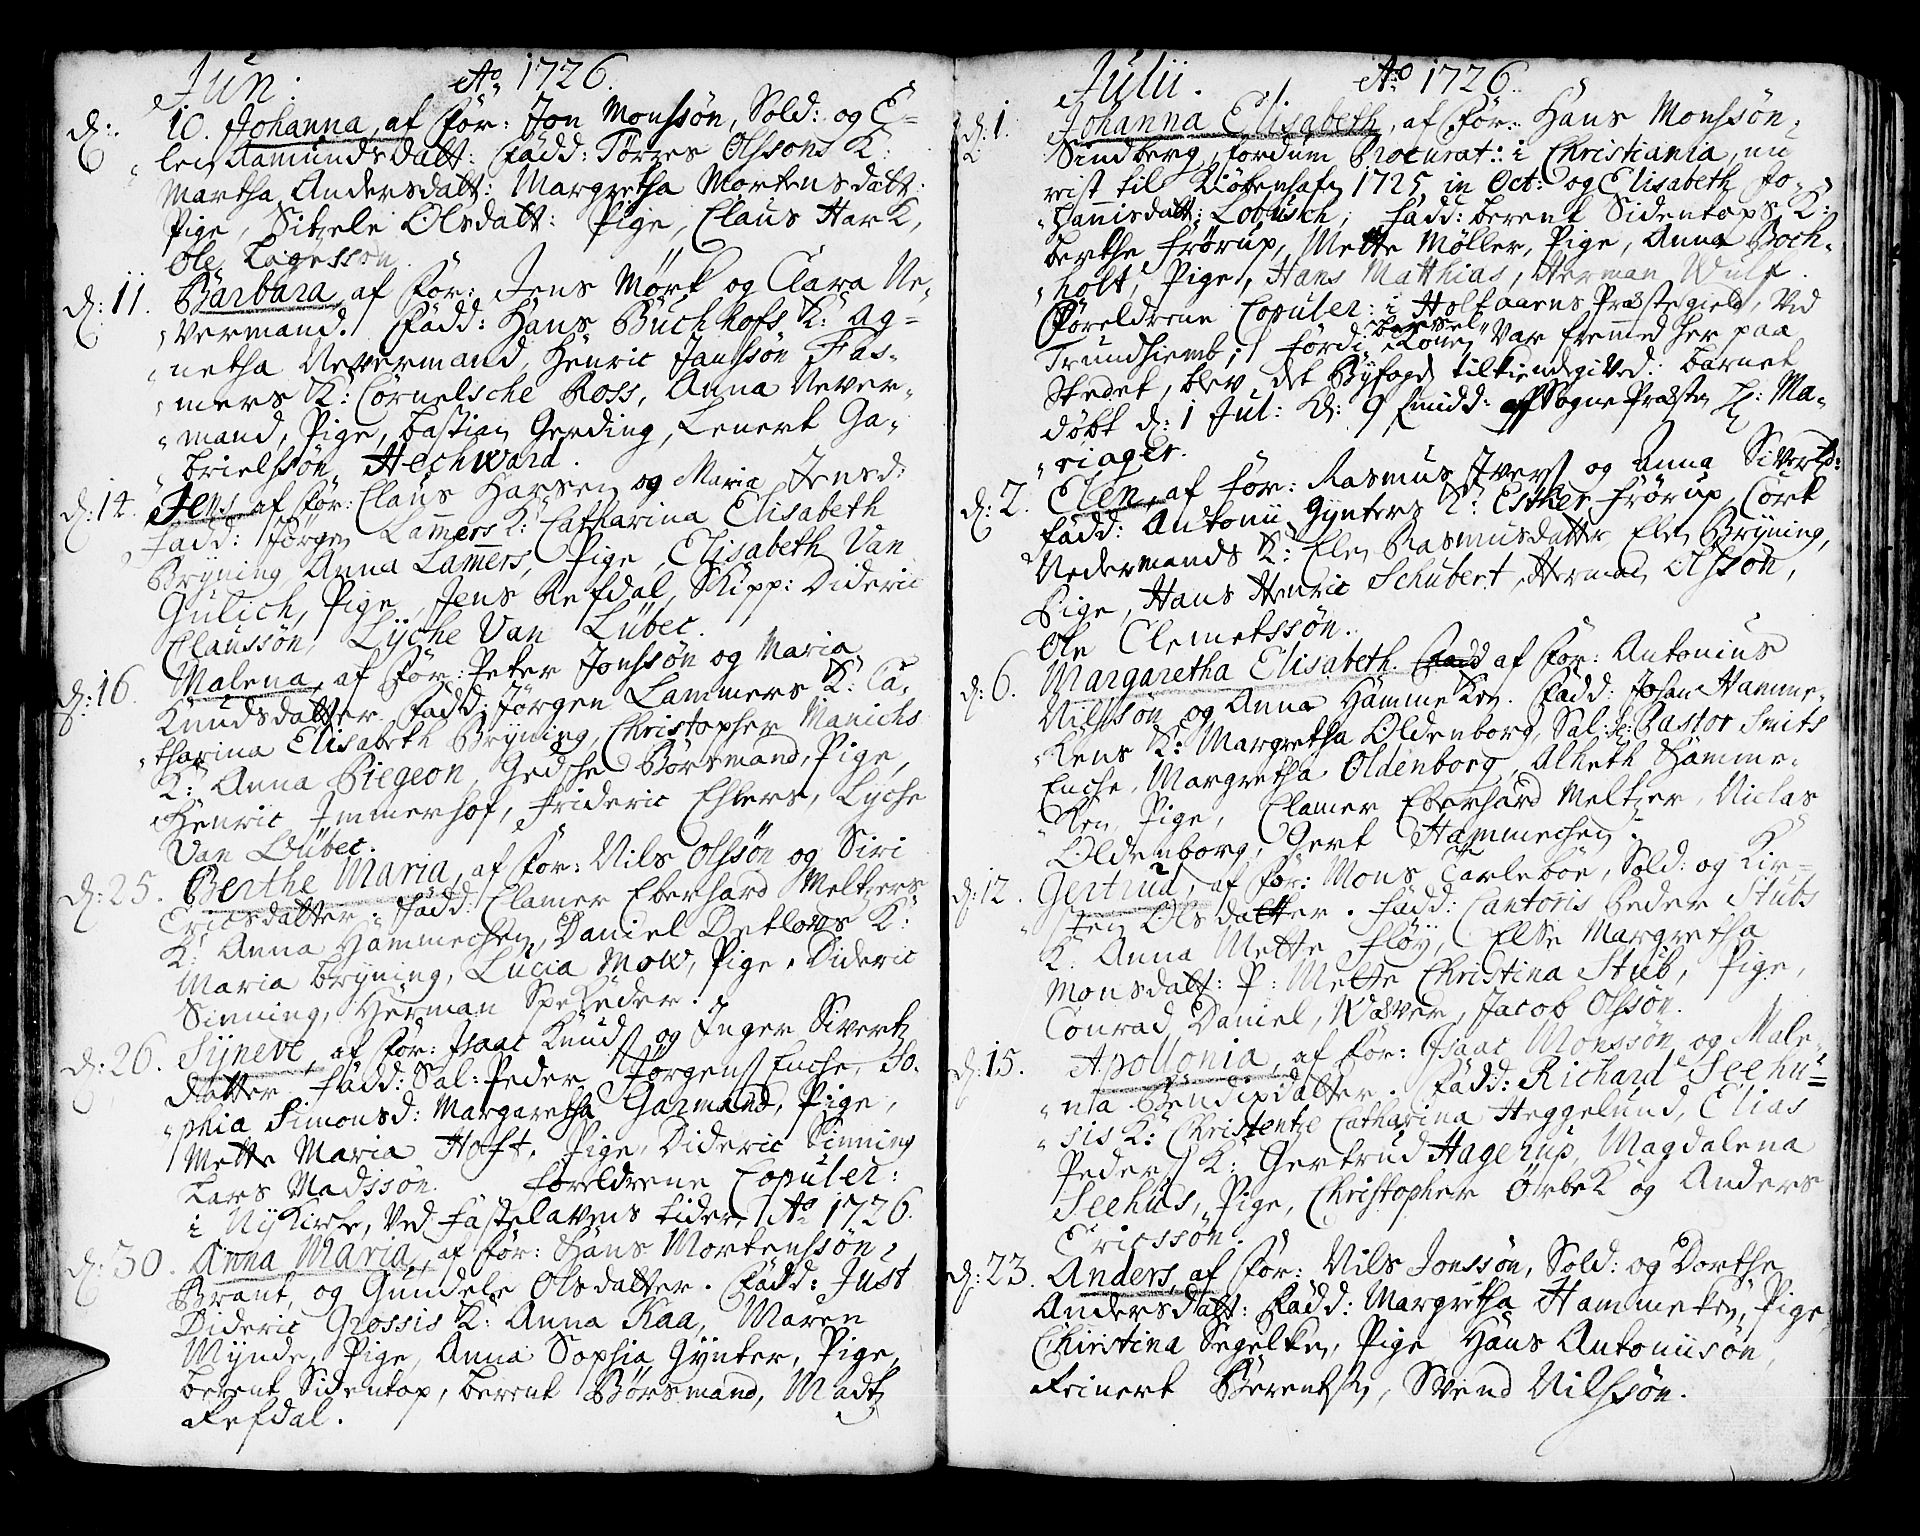 Jun: Ao 1726.
d: 10. Johanna, af for: Jon Monssøn, Sold: og E-
len Aamundsdatt: Fadd: Torres Olssons K:
Martha Andersdatt: Margretha Mortensdatt:
Pige, Sitzele Olsdatt: Pige, Claus Hark,
Ole Lagesson.
d: 11. Barbara, af for: Jens Mørk og Clara Ne-
vermand. Fadd: Hans Buchhofs K: Ag-
netha Nevermand, Henric Janssøn Fas-
mers K: Cornelsche Ross, Anna Never-
mand, Pige, Bastian Gerding, Lenert Ga-
brielssøn Heshward.
d: 14. Jens, af for: Claus Harsen og Maria Jensd:
Fadd: Jørgen Lamers K: Catharina Elisabeth
Bryning Anna Lamers, Pige, Elisabeth Van
Gulich, Pige, Jens Refdal, Skipp: Dideric
Claussøn, Lyche Van Lübec.
d: 16. Malena, af for: Peter Jonssøn og Maria
Knudsdatter. Fadd: Jørgen Lammers K: Ca-
tharina Elisabeth Bryning, Christopher Manichs
K: Anna Piegeon, Gedsche Børsmand, Pige,
Henric Immerhof, Frideric Ehlers, Lyche
Van Lübec.
d: 25. Berthe Maria, af for: Nils Olssøn og Siri
Ericsdatter. Fadd: Clamer Eberhard Meltzers
K: Anna Hammechen, Daniel Detlows K:
Maria Bryning, Lucia Mow, Pige, Dideric
Sinning, Herman Spekeder.
d: 26. Syneve, af for: Isaac Knuds og Inger Siverts
datter. Fadd: Sal: Peder Jørgens Enche, So-
phia Simonsd: Margaretha Garmand, Pige,
Mette Maria Hofft, Pige, Dideric Sinning
Lars Madssøn. Foreldrene Copuler:
i NyKirke, Ved Fastelavens tider Ao 1726.
d: 30. Anna Maria, af for: Hans Mortenssøn,
Brant, og Gundele Olsdatter. Fadd: Just
Dideric Grossis K: Anna Kaa, Maren
Mynde, Pige, Anna Sophia Gynter, Pige,
Berent Sidentop, Berent Børsmand, Madtz
Refdal.
Julii. Ao 1726.
d: 1. Johanna Elisabeth, af for: Hans Monssøn,
Sindberg, fordum Procurat: i Christiania, nu
reist til Kiøbenhafn 1725 in Oct: og Elisabeth Jo-
hannisdatt: Lobusch, Fadd: Berent Sidentops K:
Berthe Frørup, Mette Møller, Pige, Anna Boch-
holt, Pige, Hans Matthias, Herman Wulf.
Foreldrene Copuler: i Holtaarens Præstegield, Ved
Trundhiemb; fordi barsel Konen Var fremed her paa
Stedet, blev det Byfogd tilkiendegived. Barnet
døbt d: 1 Jul: Kl: 9 af Sogne Præsten H: Ma-
riager.
d: 2. Elen, af for: Rasmus Ivers og Anna Sivertsd:
Fadd: Antonii Gynters K: Esther Frørup, Cort
Nedermands K: Elen Rasmusdatter, Elen Bryning,
Pige, Hans Henric Schubert, Herman Olssøn,
Ole Clemetssøn.
d: 6. Margaretha Elisabeth. af for: Antonius
Nilssøn og Anna Hammeken. Fadd: Johan Hamme-
kens K: Margretha Oldenborg, Sal: Hr: Pastor Smits
Enche, Margretha Oldenborg, Alheth Hamme-
ken, Pige, Clamer Eberhard Meltzer, Niclas
Oldenborg, Gert Hammechen.
d: 12. Gertrud, af for: Mons Carleboe, Sold: og Kir-
sten Olsdatter. Fadd: Cantoris Peder Stubs
K: Anna Mette Fløy, Else Margretha
Monsdatt: P: Mette Christina Stub, Pige,
Conrad Daniel, Wæver, Jacob Olssøn.
d: 15. Apollonia, af for: Isaac Monssøn og Male-
na Bendixdatter. Fadd: Richard Seehu-
sis K: Christentze Catharina Heggelund, Elias
Peders K: Gertrud Hagerup, Magdalena
Seehus, Pige, Christopher Ørbek og Anders
Ericssøn.
d: 23. Anders, af for: Nils Jonssøn, Sold: og Dorthe
Andersdatt: Fadd: Margretha Hammeken, Pige
Christina Segelken, Pige Hans Antoniisøn,
Reinert Berentsen, Svend Nilssøn.